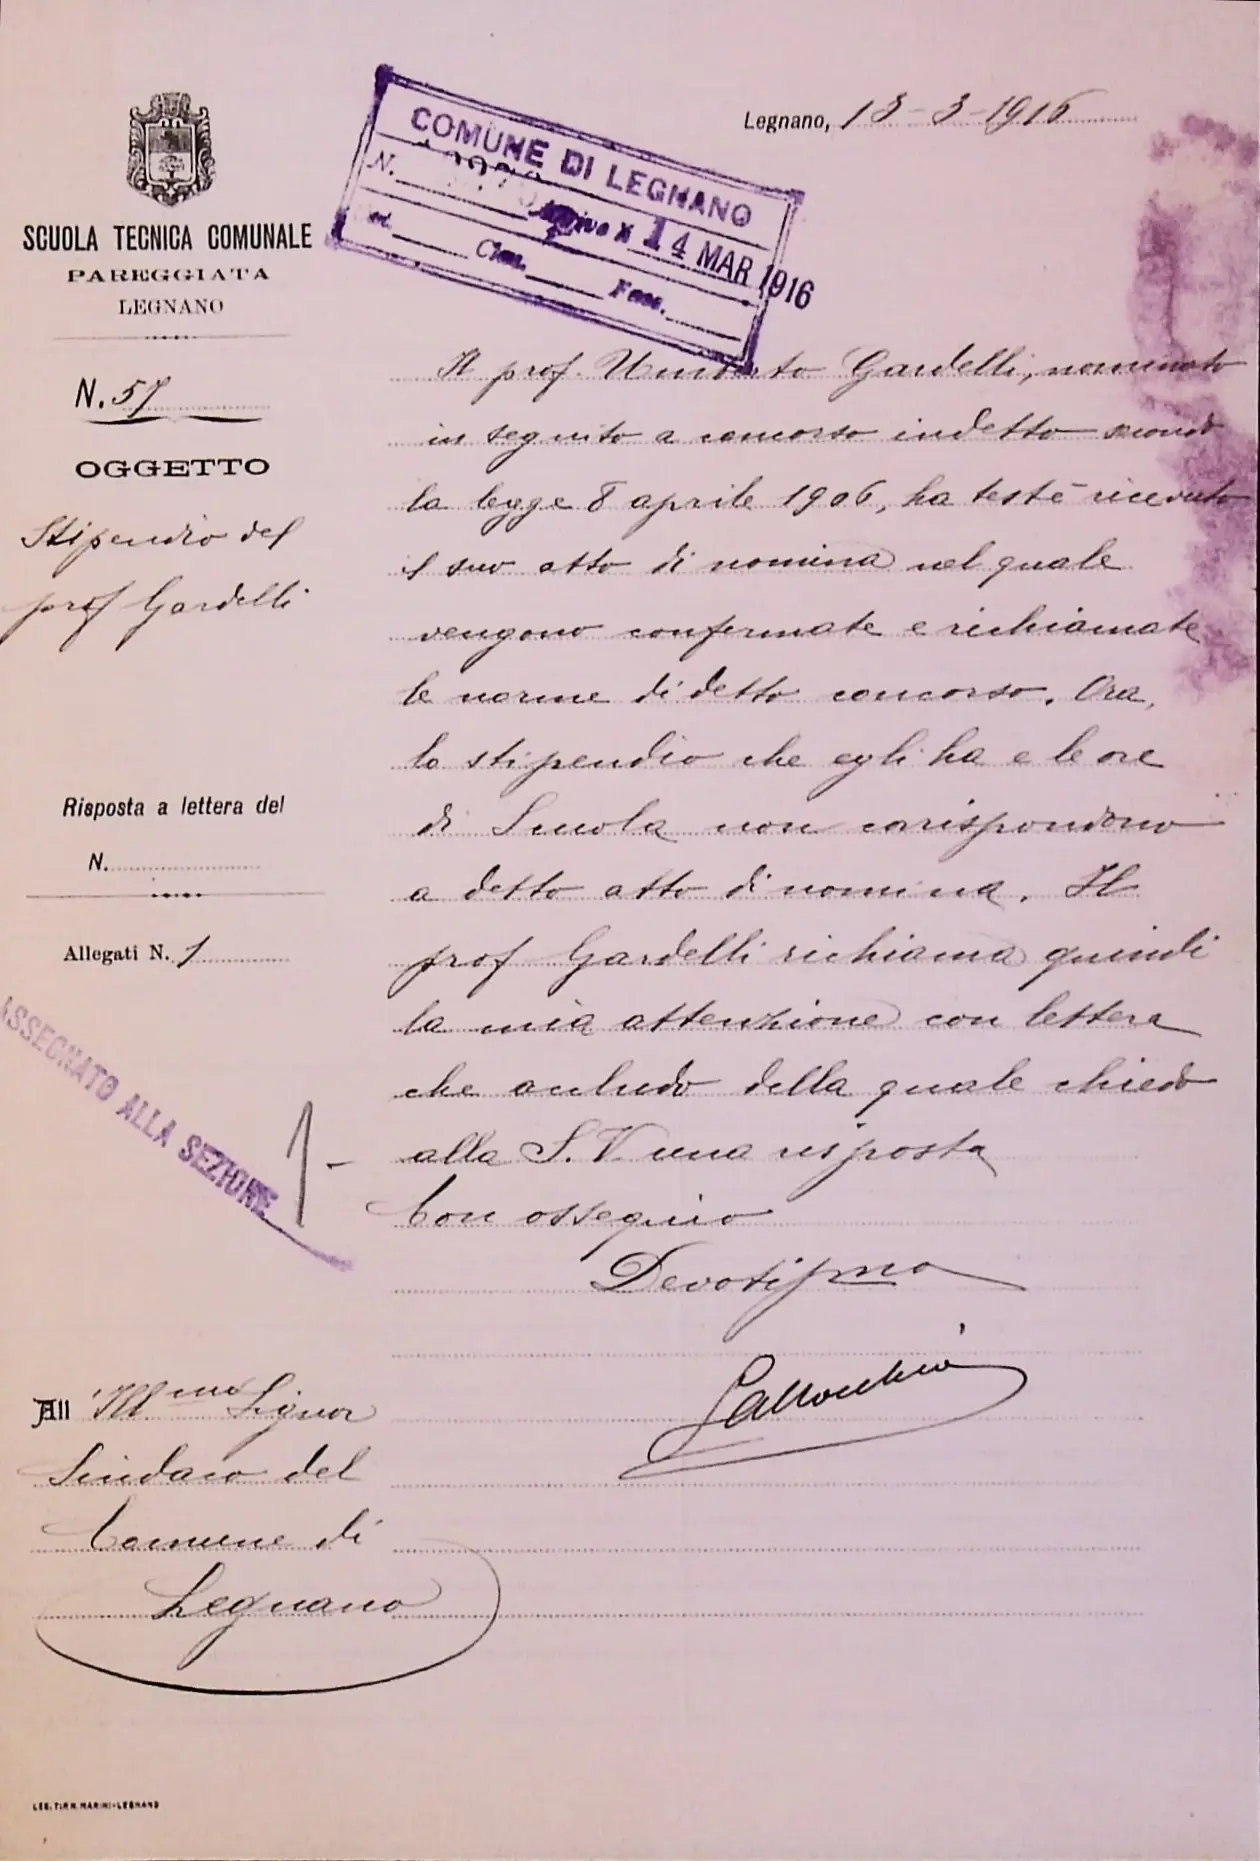 Legnano, 13-3-1916
COMUNE DI LEGNANO
N.
Arrivo il 14 MAR 1916
Clas. Fasc.
SCUOLA TECNICA COMUNALE
PAREGGIATA
LEGNANO
N. 57
OGGETTO
Stipendio del
prof Gardelli
Risposta a lettera del
N.
Allegati N. 1
ASSEGNATO ALLA SEZIONE 1-
Il prof. Umberto Gardelli, nominato
in seguito a concorso indetto secondo
la legge 8 aprile 1906, ha testè ricevuto
il suo atto di nomina nel quale
vengono confermate e richiamate
le norme di detto concorso. Ora,
lo stipendio che egli ha e le ore
di Scuola non corrispondono
a detto atto di nomina. Il
prof Gardelli richiama quindi
la mia attenzione con lettera
che accludo della quale chiedo
alla S. V. una risposta
Con ossequio
Devotissimo
All Ill.mo Signor
Sindaco del
Comune di
Legnano
LEG. TIP. M. MARINI-LEGNANO